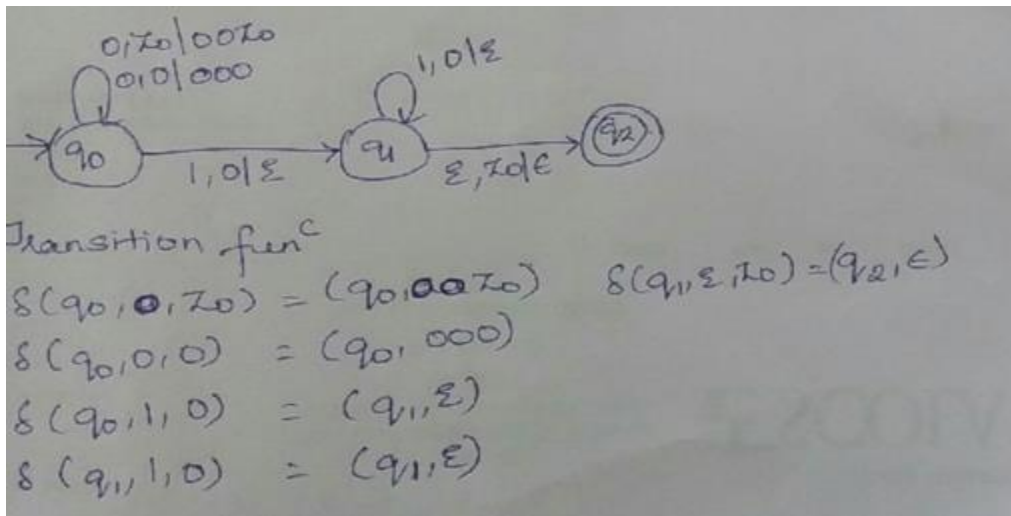 0,z0|00z0
0,0|000
1,0|ε
q0
q1
q2
1,0|ε
ε,z0|ε
Transition funᶜ
δ(q0,0,z0) = (q0,00z0) δ(q1,ε,z0)=(q2,ε)
δ(q0,0,0) = (q0,000)
δ(q0,1,0) = (q1,ε)
δ(q1,1,0) = (q1,ε)